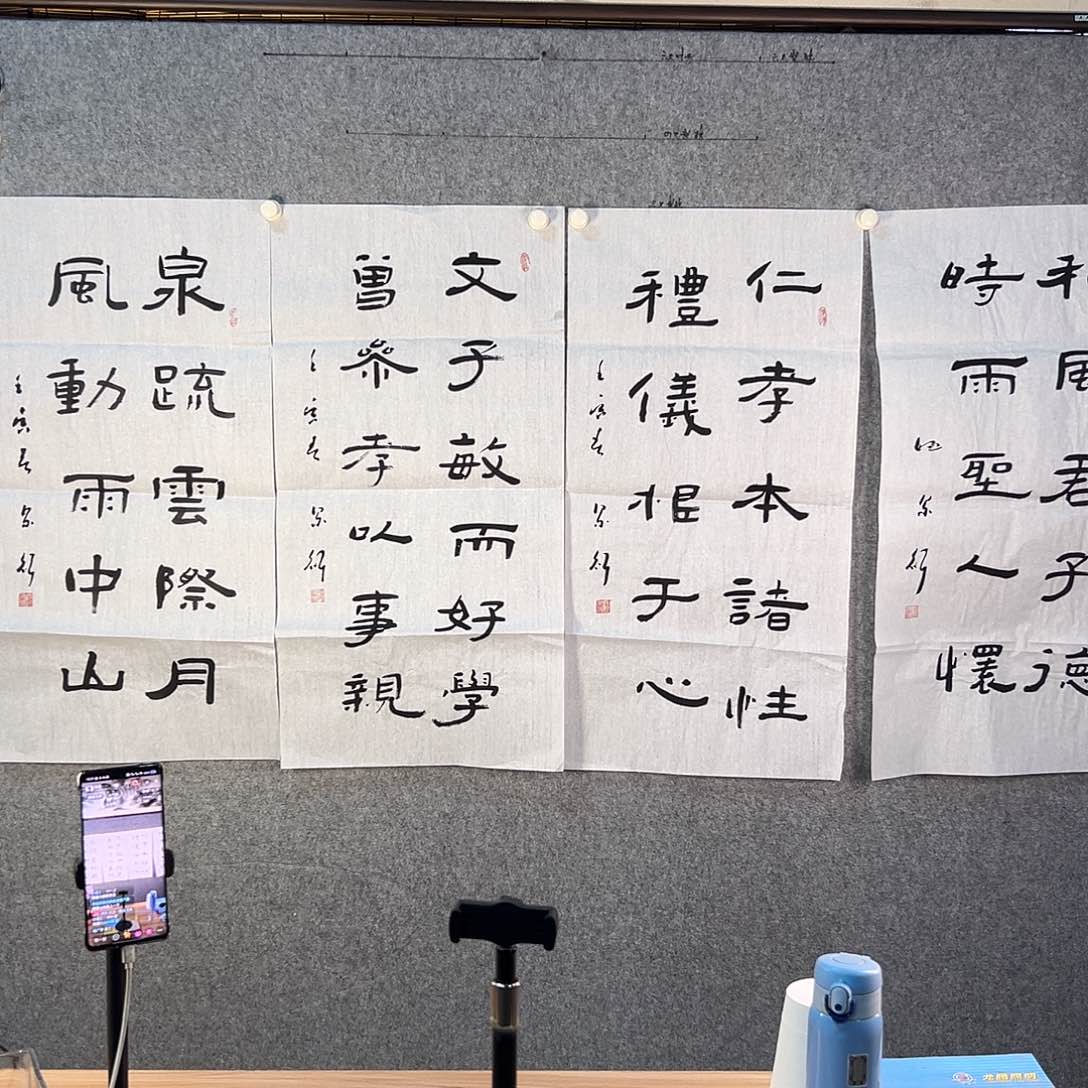 和風君子德
時雨聖人懷
仁孝本諸性
禮儀根于心
壬寅春
文子敏而好學
曾參孝以事親
壬寅春
泉疏雲際月
風動雨中山
壬寅春